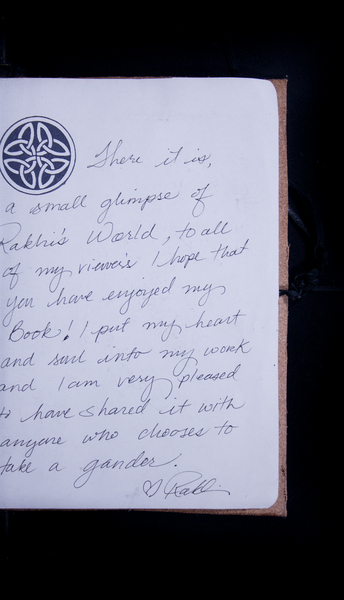 There it is,
a small glimpse of
Rakhi's World, to all
of my viewers I hope that
you have enjoyed my
Book! I put my heart
and soul into my work
and I am very pleased
to have shared it with
anyone who chooses to
take a gander.
♡ Rakhi